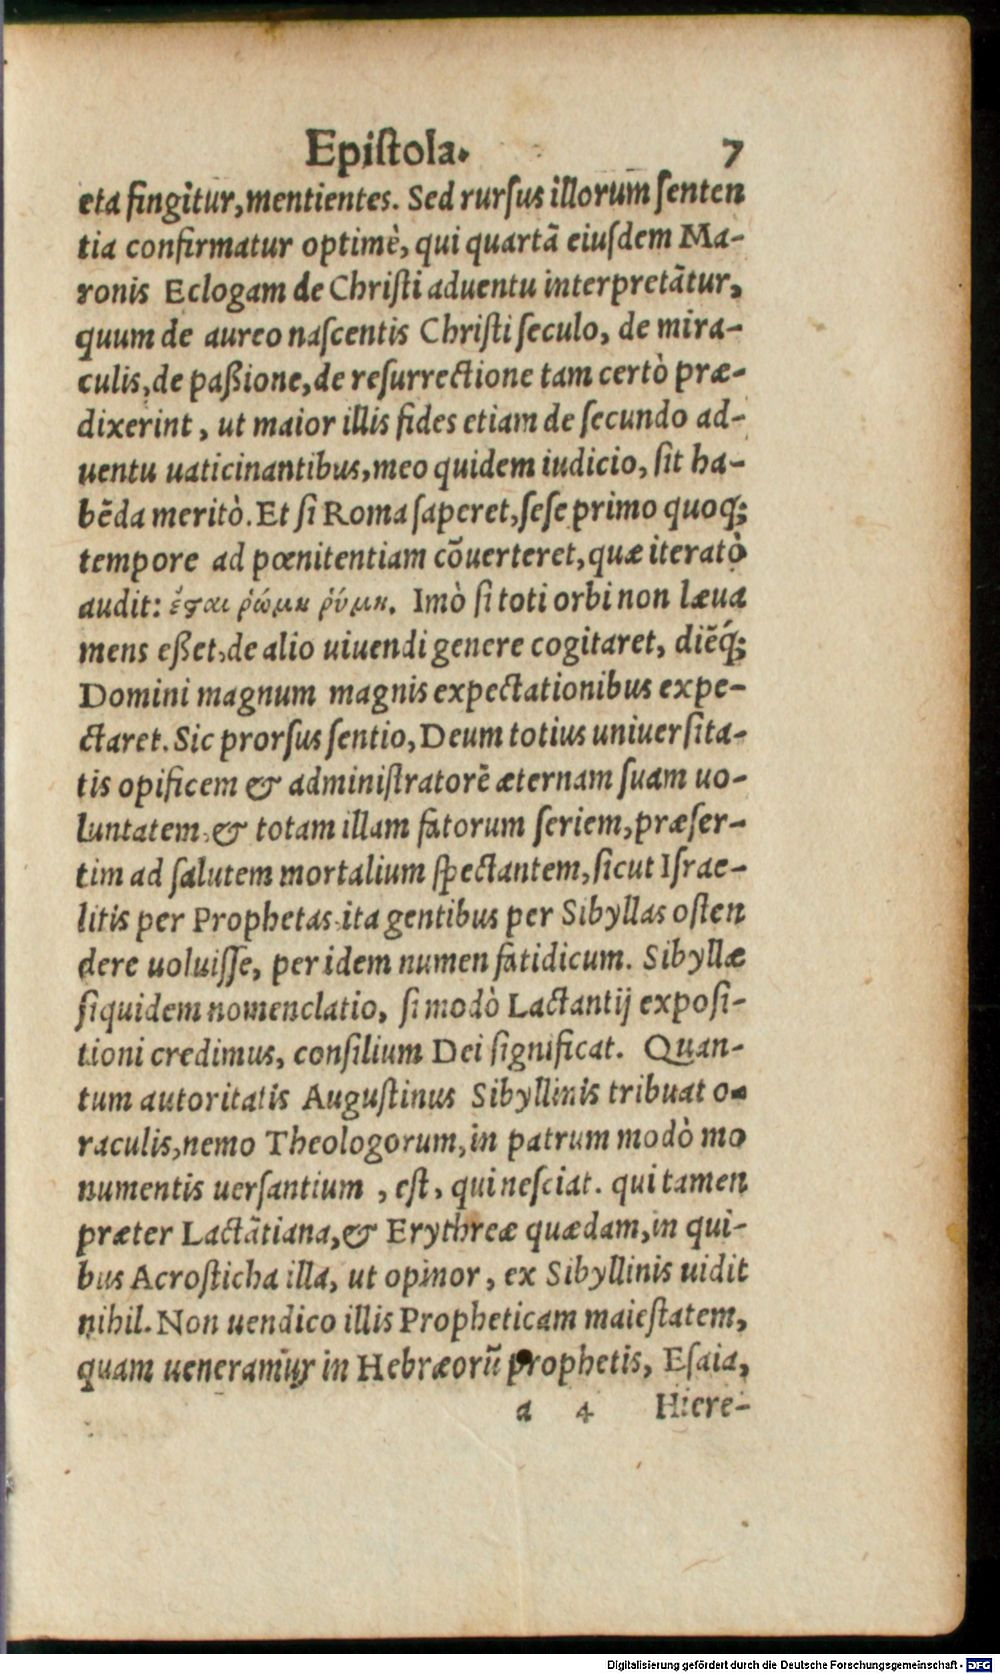 Epiſtola. 7
eta fingitur, mentientes. Sed rurſus illorum ſenten
tia confirmatur optimè, qui quartã eiuſdem Ma-
ronis Eclogam de Chriſti aduentu interpretãtur,
quum de aureo naſcentis Chriſti ſeculo, de mira-
culis, de paßione, de reſurrectione tam certò præ-
dixerint, ut maior illis fides etiam de ſecundo ad-
uentu uaticinantibus, meo quidem iudicio, ſit ha-
bẽda meritò. Et ſi Roma ſaperet, ſeſe primo quoq;
tempore ad pœnitentiam cõuerteret, quæ iteratò
audit: ἔσαι ῥώμη ῥύμη. Imò ſi toti orbi non læua
mens eßet, de alio uiuendi genere cogitaret, diẽq́;
Domini magnum magnis expectationibus expe-
ctaret. Sic prorſus ſentio, Deum totius uniuerſita-
tis opificem & adminiſtratorẽ æternam ſuam uo-
luntatem, & totam illam fatorum ſeriem, præſer-
tim ad ſalutem mortalium ſpectantem, ſicut Iſrae-
litis per Prophetas, ita gentibus per Sibyllas oſten
dere uoluiſſe, per idem numen fatidicum. Sibyllæ
ſiquidem nomenclatio, ſi modò Lactantij expoſi-
tioni credimus, conſilium Dei ſignificat. Quan-
tum autoritatis Auguſtinus Sibyllinis tribuat o-
raculis, nemo Theologorum, in patrum modò mo
numentis uerſantium, eſt, qui neſciat. qui tamen
præter Lactãtiana, & Erythreæ quædam, in qui-
bus Acroſticha illa, ut opinor, ex Sibyllinis uidit
nihil. Non uendico illis Propheticam maieſtatem,
quam ueneramur in Hebræorũ prophetis, Eſaia,
a 4 Hiere-
Digitalisierung gefördert durch die Deutsche Forschungsgemeinschaft - DFG